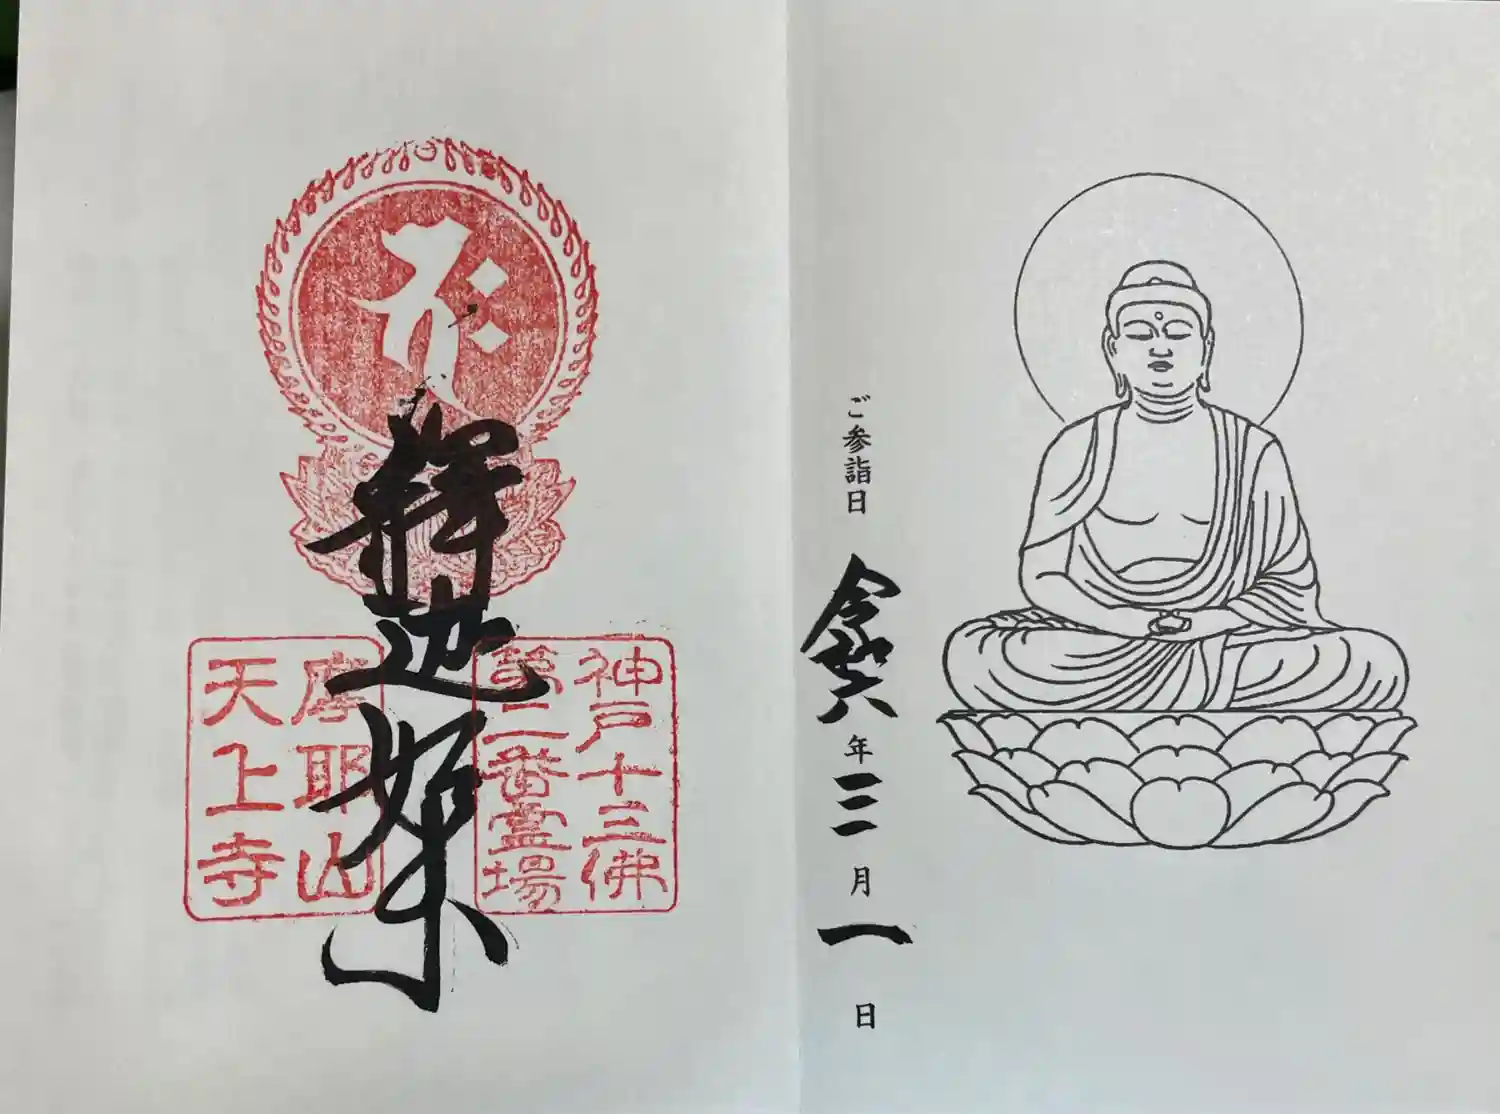 ご参詣日 令和六年三月一日
釋迦如来
神戸十三佛
第二番霊場
摩耶山
天上寺